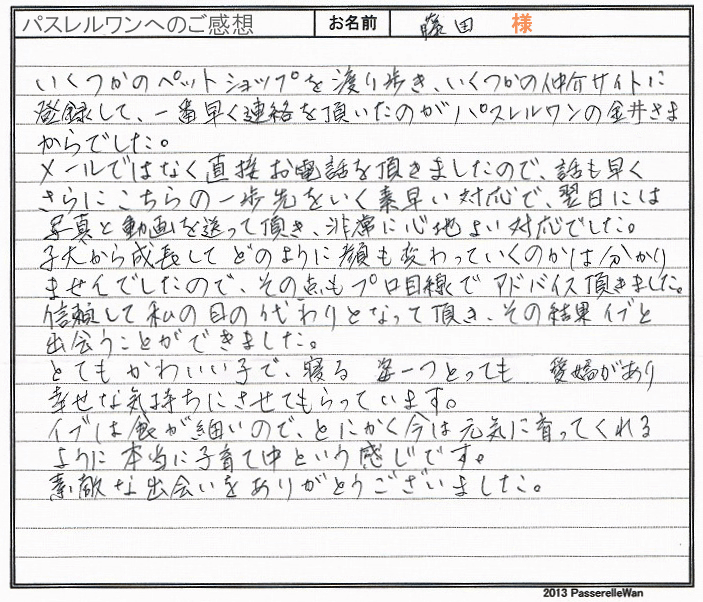 パスレルワンへのご感想 お名前 藤田 様
いくつかのペットショップを渡り歩き、いくつかの仲介サイトに
登録して、一番早く連絡を頂いたのがパスレルワンの金井さま
からでした。
メールではなく直接お電話を頂きましたので、話も早く
さらにこちらの一歩先をいく素早い対応で、翌日には
写真と動画を送って頂き、非常に心地よい対応でした。
子犬から成長してどのように顔も変わっていくのかは分かり
ませんでしたので、その点もプロ目線でアドバイス頂きました。
信頼して私の目の代わりとなって頂き、その結果イブと
出会うことができました。
とてもかわいい子で、寝る姿一つとっても 愛嬌があり
幸せな気持ちにさせてもらっています。
イブは食が細いので、とにかく今は元気に育ってくれる
ように本当に子育て中という感じです。
素敵な出会いをありがとうございました。
2013 PasserelleWan